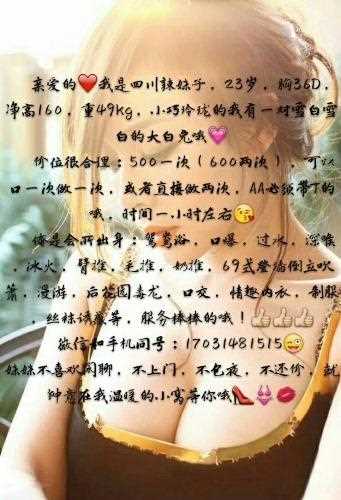 亲爱的❤️我是四川辣妹子，23岁，胸36D，
净高160，重49kg，小巧玲珑的我有一对雪白雪
白的大白兔哦💗
价位很合理：500一次（600两次），可以
口一次做一次，或者直接做两次，AA必须带T的
哦，时间一小时左右😘
俺是会所出身：鸳鸯浴，口爆，过水，深喉
，冰火，臂推，毛推，奶推，69式登插倒立吹
箫，漫游，后花园毒龙，口交，情趣内衣，制服
，丝袜诱惑等，服务棒棒的哦！👍👍👍
微信和手机同号：17031481515😜
妹妹不喜欢闲聊，不上门，不包夜，不还价，就
钟意在我温暖的小窝等你哦👠👙💋